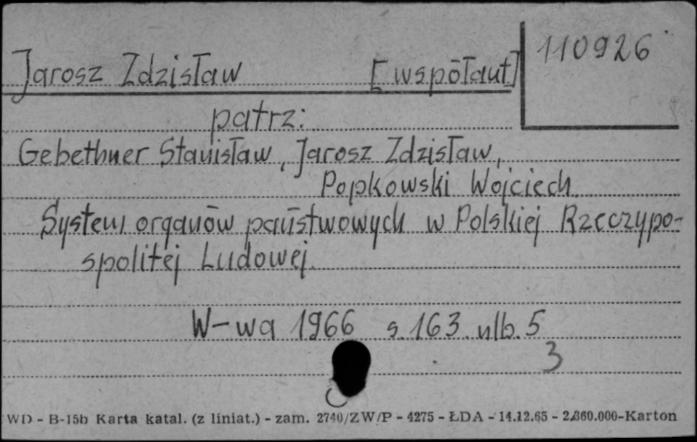 110926
Jarosz Zdzisław [współaut]
patrz:
Gebethner Stanisław, Jarosz Zdzisław,
Popkowski Wojciech
System organów państwowych w Polskiej Rzeczypo-
spolitej Ludowej.
W-wa 1966 s. 163 nlb. 5
3
WD - B-15b Karta katal. (z liniat.) - zam. 2740/ZW/P - 4275 - ŁDA - 14.12.65 - 2.860.000-Karton